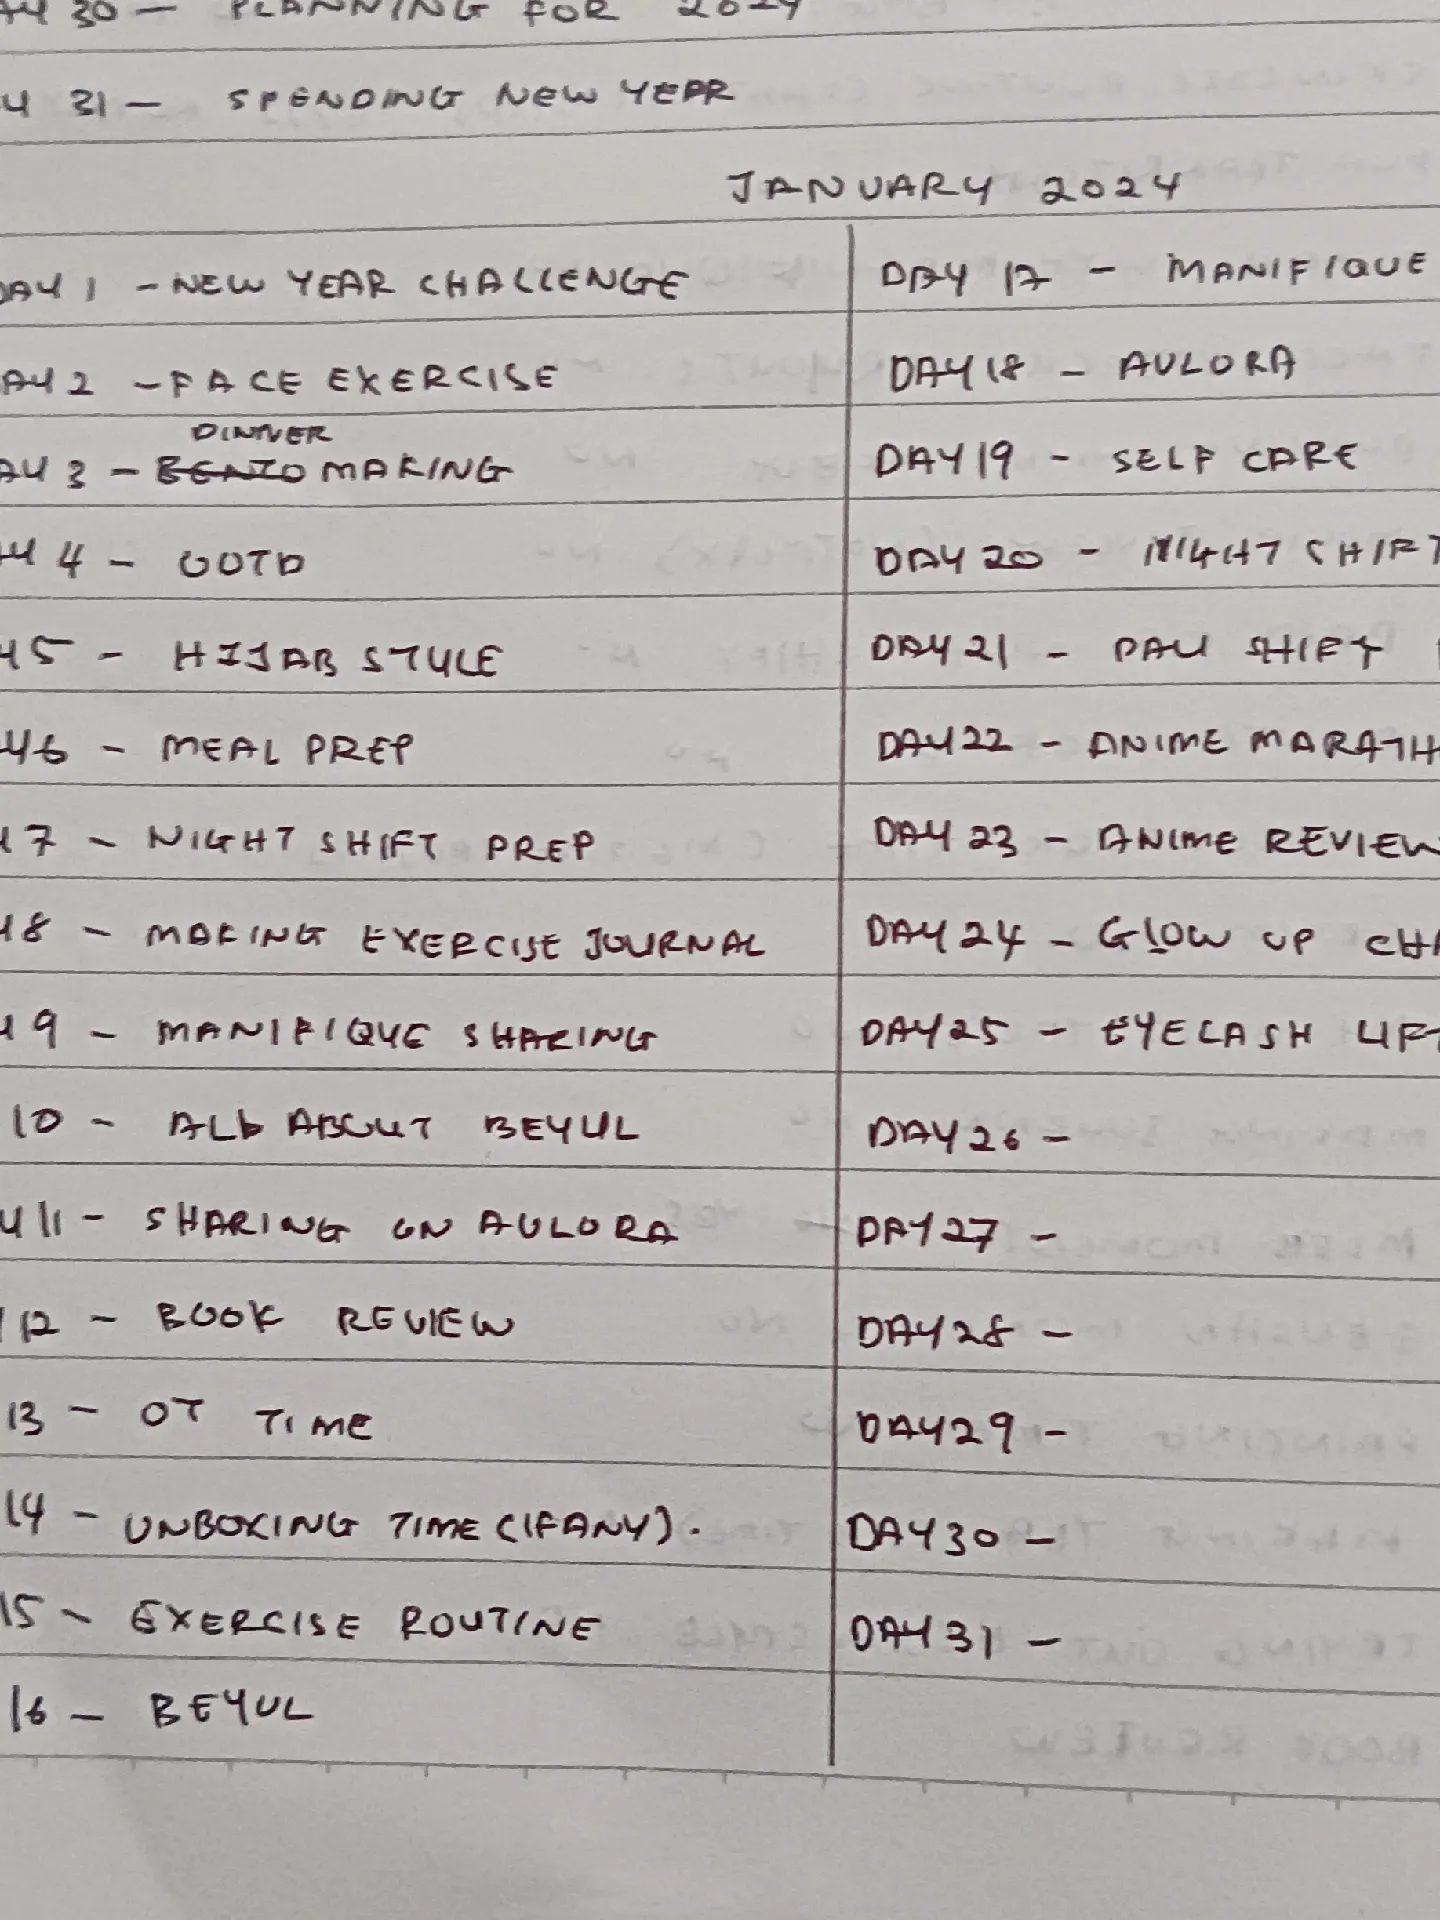 AY 30 - PLANNING FOR 2024
AY 31 - SPENDING NEW YEAR
JANUARY 2024
DAY 1 - NEW YEAR CHALLENGE
AY 2 - FACE EXERCISE
DINNER
AY 3 - BENTO MAKING
AY 4 - OOTD
Y5 - HIJAB STYLE
Y6 - MEAL PREP
Y7 - NIGHT SHIFT PREP
Y8 - MAKING EXERCISE JOURNAL
Y9 - MANIFIQUE SHARING
10 - ALL ABOUT BEYUL
Y 11 - SHARING ON AULORA
12 - BOOK REVIEW
13 - OT TIME
14 - UNBOXING TIME (IF ANY).
15 - EXERCISE ROUTINE
16 - BEYUL
DAY 17 - MANIFIQUE
DAY 18 - AULORA
DAY 19 - SELF CARE
DAY 20 - NIGHT SHIFT
DAY 21 - DAY SHIFT
DAY 22 - ANIME MARATH
DAY 23 - ANIME REVIEW
DAY 24 - GLOW UP CHA
DAY 25 - EYELASH LIFT
DAY 26 -
DAY 27 -
DAY 28 -
DAY 29 -
DAY 30 -
DAY 31 -